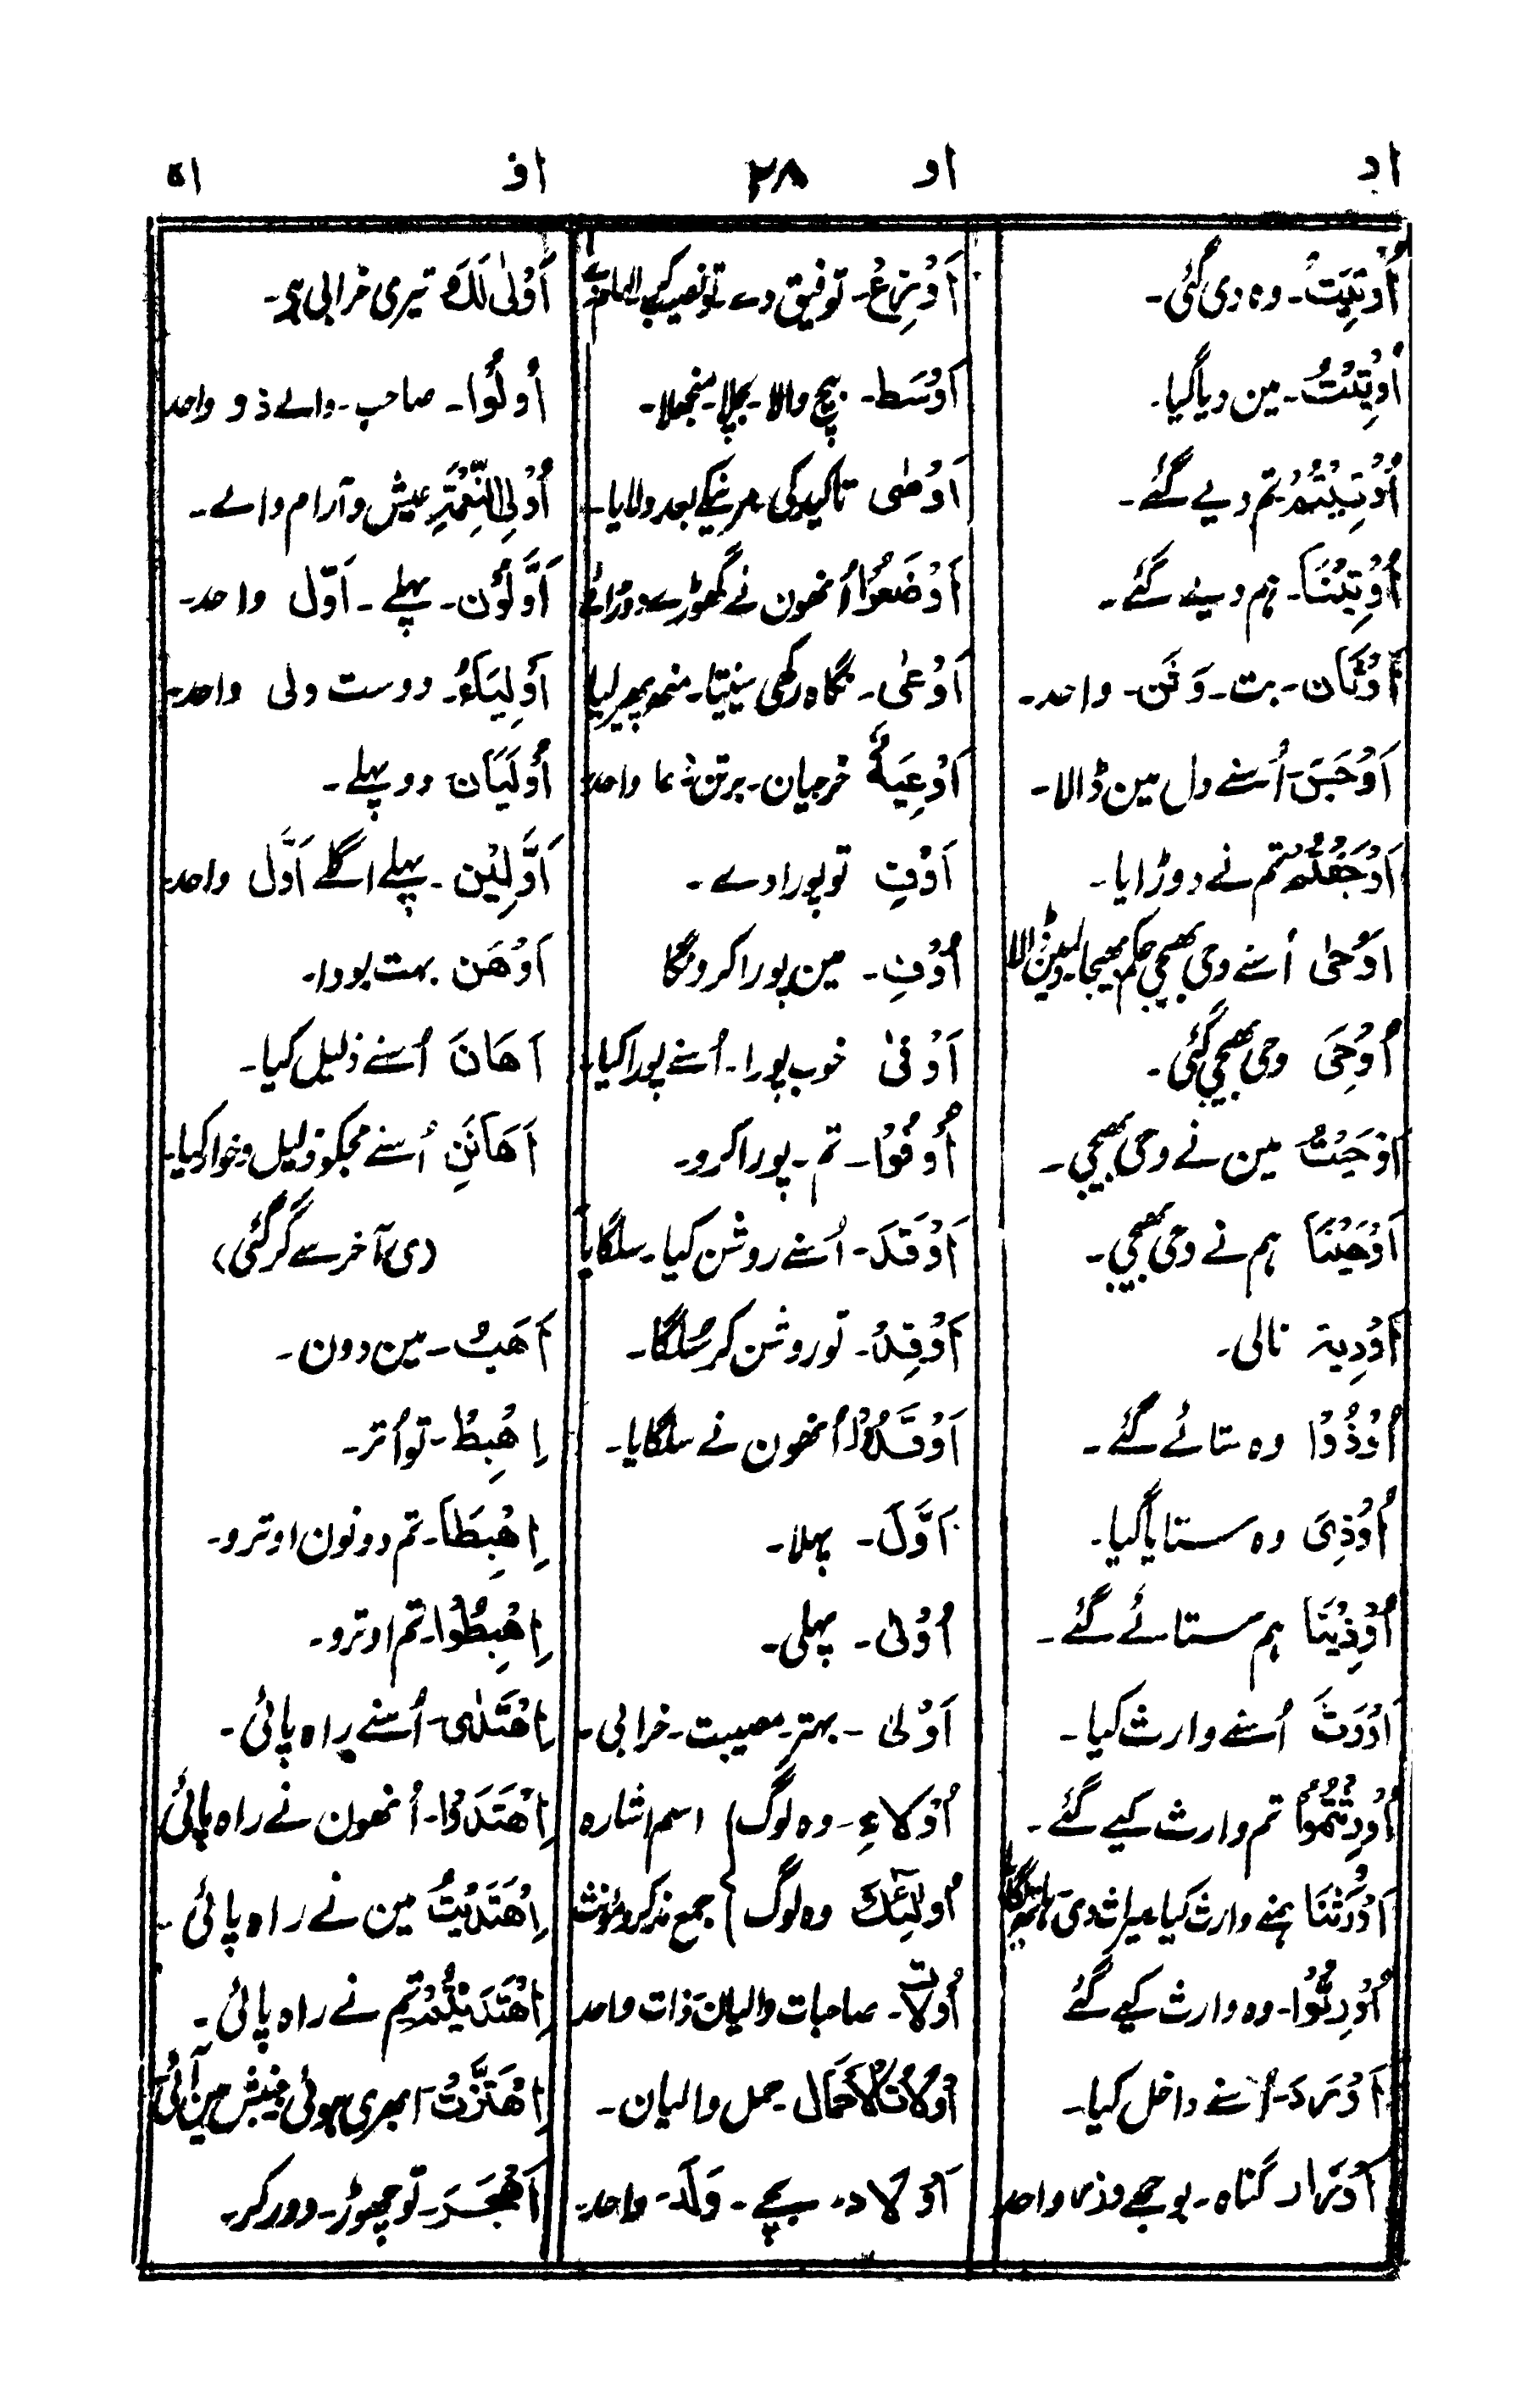 او ۲۸ او او اہ
اُوْتِيَتْ۔ وہ دی گئی۔
اُوْتِيْتُ۔ مین دیا گیا۔
اُوْتِيْتُمْ۔ تم دیے گئے۔
اُوْتِيْنَا۔ ہم دیئے گئے۔
اَوْثَان۔ بت۔ وَثَن۔ واحد۔
اَوْجَسَ۔ اُسنے دل مین ڈالا۔
اَوْجَفْتُمْ تم نے دوڑایا۔
اَوْحٰی اُسنے وحی بھیجی حکم بھیجا۔
اُوْحِیَ وحی بھیجی گئی۔
اَوْحَيْتُ مین نے وحی بھیجی۔
اَوْحَيْنَا ہم نے وحی بھیجی۔
اَوْدِیۃ نالی۔
اُوْذُوْا وہ ستائے گئے۔
اُوْذِیَ وہ ستایا گیا۔
اُوْذِيْنَا ہم ستائے گئے۔
اَوْرَثَ اُسنے وارث کیا۔
اُوْرِثْتُمُوْا تم وارث کیے گئے۔
اَوْرَثْنَا ہمنے وارث کیا۔ میراث دی
اُوْرِثُوْا۔ وہ وارث کیے گئے
اَوْرَدَ۔ اُسنے داخل کیا۔
اَوْزَار گناہ۔ بوجھے وزر واحد
اَوْزِعْ۔ توفیق دے۔ تو نصیب کر۔ الہام دے
اَوْسَط۔ بیچ والا۔ بچلا۔ منجھلا۔
اَوْصٰی تاکید کی مرنیکے بعد دلایا۔
اَوْضَعُوْا اُنھون نے گھوڑے دوڑائے
اَوْعٰی۔ نگاہ رکھی سینتا۔ منھ پھیر لیا
اَوْعِيَةً خرجیان۔ برتن۔ وعا واحد
اَوْفِ تو پورا دے۔
اُوْفِ۔ مین پورا کرونگا
اَوْفٰی خوب پورا۔ اُسنے پورا کیا۔
اُوْفُوْا۔ تم۔ پورا کرو۔
اَوْقَدَ۔ اُسنے روشن کیا۔ سلگایا
اَوْقِدْ۔ تو روشن کر سُلگا۔
اَوْقَدُوْا اُنھون نے سلگایا۔
اَوَّلَ۔ پہلا۔
اُوْلٰی۔ پہلی۔
اَوْلٰی۔ بہتر۔ مصیبت۔ خرابی۔
اُوْلاءِ۔ وہ لوگ } اسم اشارہ
اُولٰئِكَ وہ لوگ } جمع مذکر و مؤنث
اُولات۔ صاحبات والیان۔ ذات واحد
اُولَاتُ الْاَحْمَال۔ حمل والیان۔
اَوْلَاد۔ بچے۔ وَلَد۔ واحد۔
اَوْلٰی لَكَ تیری خرابی ہی۔
اُولُوا۔ صاحب۔ والے ذو واحد
اُوْلِی النِّعْمَةِ عیش و آرام والے۔
اَوَّلُوْن۔ پہلے۔ اَوّل واحد۔
اَوْلِيَاءُ۔ دوست ولی واحد۔
اُوْلَيَان دو پہلے۔
اَوَّلِيْن۔ پہلے اگلے اَوَّل واحد
اَوْهَن بہت بودا۔
اَهَانَ اُسنے ذلیل کیا۔
اَهَانَنِ اُسنے مجکو ذلیل و خوار کیا۔
(ی آخر سے گر گئی)
اَهَبُ۔ مین دون۔
اِهْبِطْ۔ تو اُتر۔
اِهْبِطَا۔ تم دونون اوترو۔
اِهْبِطُوْا۔ تم اوترو۔
اِهْتَدٰى۔ اُسنے راہ پائی۔
اِهْتَدَوْا۔ اُنھون نے راہ پائی
اِهْتَدَيْتُ مین نے راہ پائی۔
اِهْتَدَيْتُمْ تم نے راہ پائی۔
اِهْتَزَّتْ ابھری ہوئی جنبش مین آئی
اُهْجُرْ۔ تو چھوڑ۔ دور کر۔